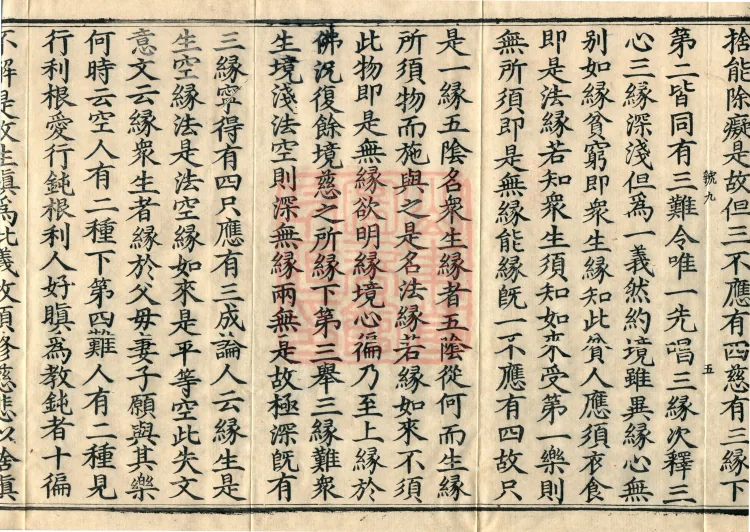 捨能除癡是故但三不應有四慈有三緣下
號九
五
第二皆同有三難令唯一先唱三緣次釋三
心三緣深淺但爲一義然約境雖異緣心無
別如緣貧窮即衆生緣知此貧人應須衣食
即是法緣若知衆生須知如來受第一樂則
無所須即是無緣能緣旣一不應有四故只
是一緣五陰名衆生緣者五陰從何而生緣
所須物而施與之是名法緣若緣如來不須
此物即是無緣欲明緣境心徧乃至上緣於
佛況復餘境慈之所緣下第三舉三緣難衆
生境淺法空則深無緣兩無是故極深旣有
三緣寧得有四只應有三成論人云緣生是
生空緣法是法空緣如來是平等空此失文
意文云緣衆生者緣於父母妻子願與其樂
何時云空人有二種下第四難人有二種見
行利根愛行鈍根利人好瞋爲教鈍者十徧
不解是故生瞋爲此義故須修慈悲以捨瞋